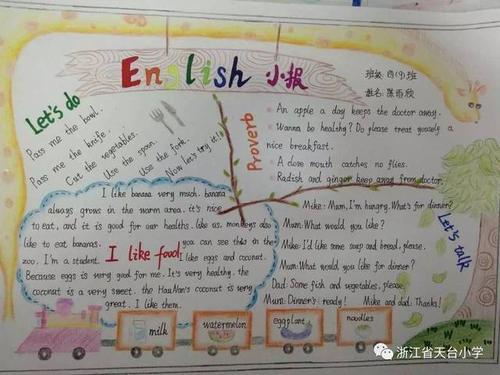 English 小报
班级: 四(9)班
姓名: 陈雨欣
Let's do
Pass me the bowl.
Pass me the knife.
Cut the vegetables.
Use the spoon.
Use the fork.
Now let's try it!
Proverb
An apple a day keeps the doctor away.
Wanna be healthy? Do please treat yousely a
nice breakfast.
A close mouth catches no flies.
Radish and ginger keep away from doctor.
I like banana very much. banana
always grows in the warm area. it's nice
to eat, and it is good for our healths. like us, monkeys also
like to eat bananas. you can see this in the
zoo. I'm a student. I like eggs and coconat.
Because eggs is very good for me. It's very healthy. the
coconat is a very sweet. the HaaNan's coconut is very
great. I like them.
I like food
Mike: Mum, I'm hungry. What's for dinner?
Mum: What would you like?
Mike: I'd like some soup and bread, please.
Mum: What would you like for dinner?
Dad: Some fish and vegetables, please.
Mum: Dinner's ready!
Mike and dad: Thanks!
Let's talk
milk
watermelon
eggplant
noodles
浙江省天台小学